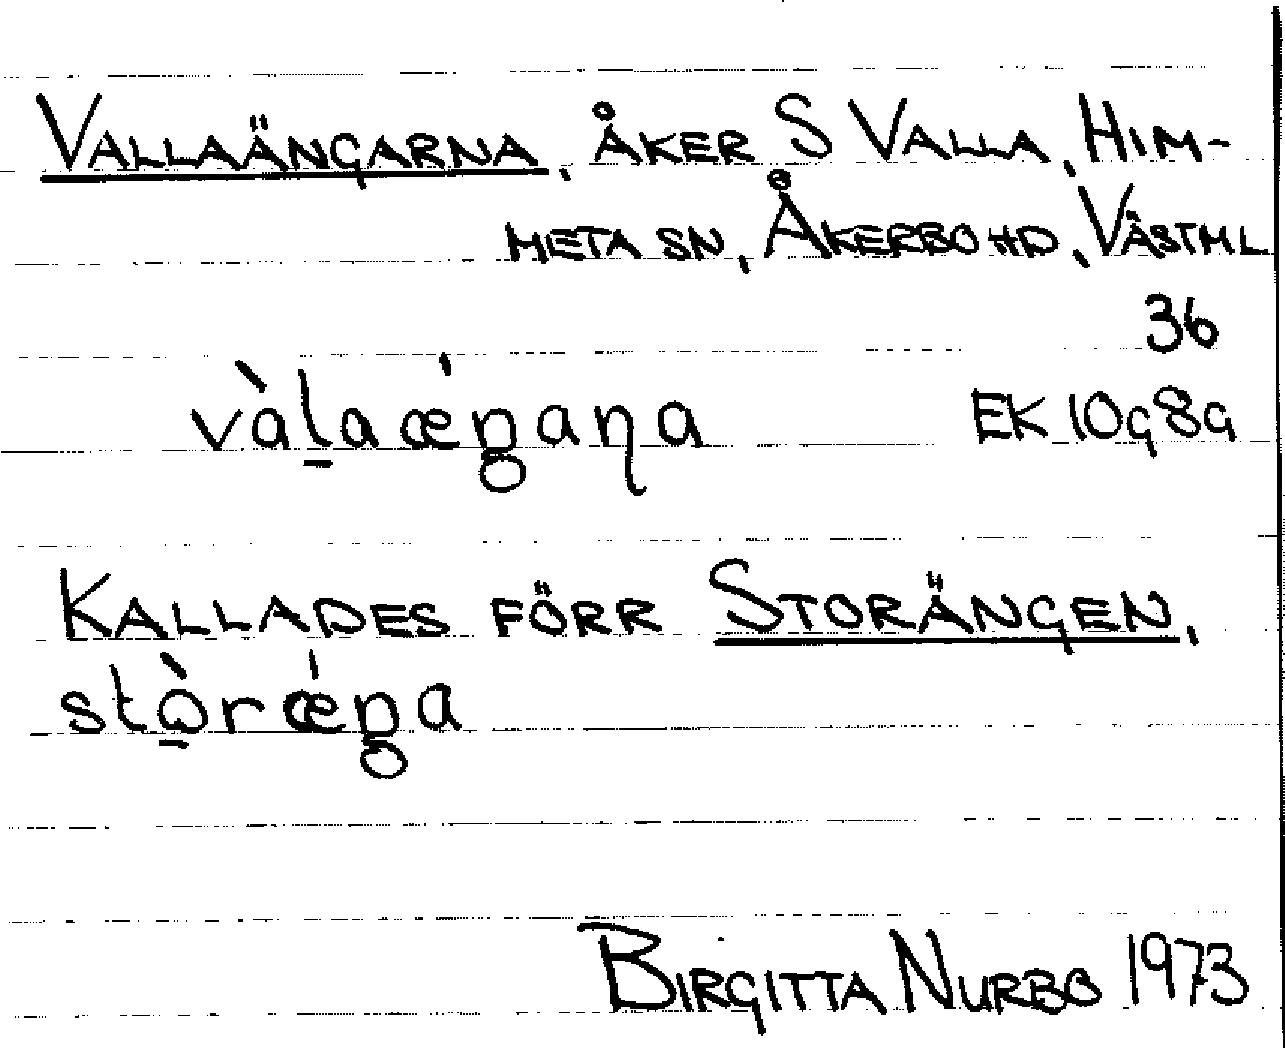 VALLAÄNGARNA, ÅKER S VALLA, HIM-
META SN, ÅKERBO HD, VÄSTML
36
vàl̠aǽŋaɳa EK 10g8g
KALLADES FÖRR STORÄNGEN,
stò̠rǽŋa
BIRGITTA NURBO 1973